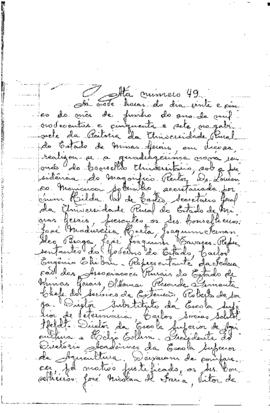 Ata número 49.
Às nove horas do dia vinte e cin-
co do mês de junho do ano de mil
novecentos e cinquenta e sete, no gabi-
nete da Reitoria da Universidade Rural
do Estado de Minas Gerais, em Viçosa,
realizou-se a quadragésima nona ses-
são do Conselho Universitário, sob a pre-
sidência do Magnífico Reitor, Dr. Lourenço
Menicucci Sobrinho, secretariada por
mim, Secretário Geral
da Universidade Rural do Estado de Mi-
nas Gerais, presentes os Srs. Conselheiros:
José Madureira Horta, Joaquim Fernan-
des Braga, José Joaquim Tavares, Repre-
sentantes do Governo do Estado,
Eugênio Thibau, Representante da Federa-
ção das Associações Rurais do Estado de
Minas Gerais,
Chefe dos Serviços de Extensão, Roberto
Diretor Substituto da Escola Supe-
rior de Veterinária, Carlos Socias Schlot-
tfeldt, Diretor da Escola Superior de Agri-
cultura e Presidente do
Diretório Acadêmico da Escola Superior
de Agricultura. Deixaram de compare-
cer, por motivo justificado, os Srs. Con-
selheiros: José Nicolau de Faria,